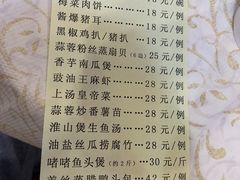 梅菜肉饼………18元/例
酱爆猪耳………18元/例
黑椒鸡扒/猪扒…18元/例
蒜蓉粉丝蒸扇贝(6边)25元/例
香芋南瓜煲………28元/例
豉油王麻虾………28元/例
上汤皇帝菜………28元/例
蒜蓉炒番薯苗……28元/例
淮山煲生鱼汤……28元/例
油盐丝瓜捞腐竹…28元/例
啫啫鱼头煲(约2斤)…30元/斤
42元/例